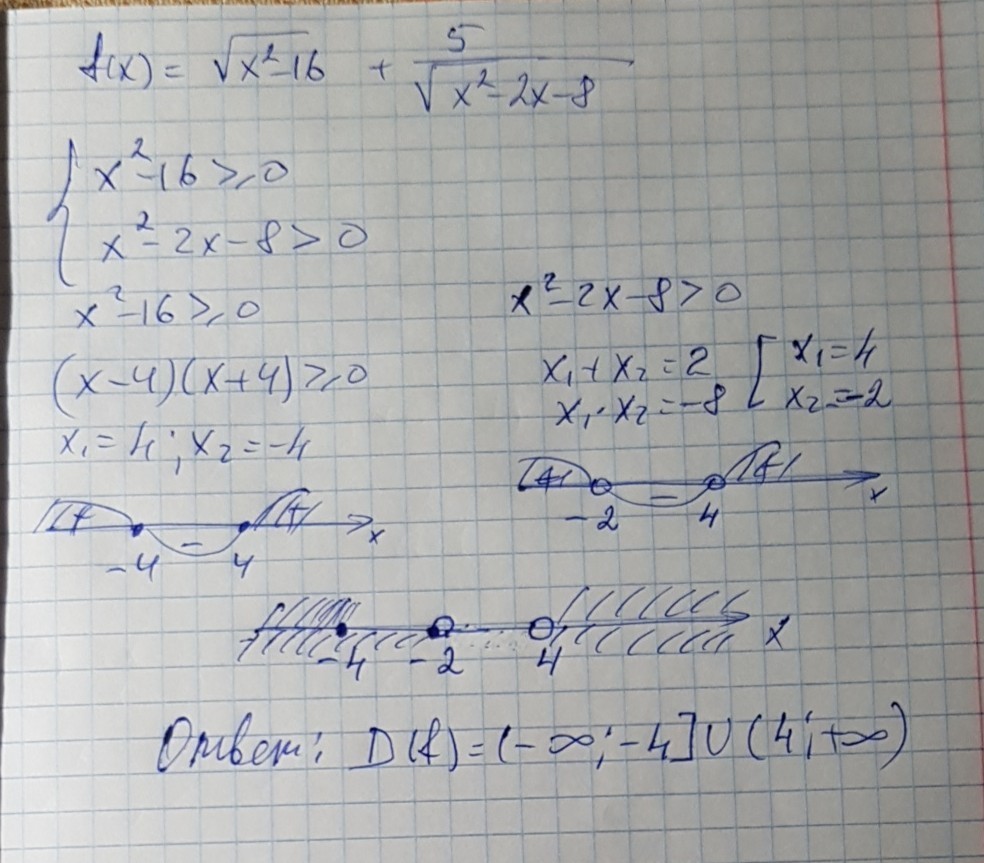 f(x) = √(x²-16) + 5/√(x²-2x-8)
{ x²-16 ⩾ 0
x²-2x-8 > 0
x²-16 ⩾ 0
(x-4)(x+4) ⩾ 0
x₁ = 4 ; x₂ = -4
+ - + x
-4 4
x²-2x-8 > 0
x₁ + x₂ = 2 [ x₁ = 4
x₁ · x₂ = -8 x₂ = -2
+ - + x
-2 4
-4 -2 4 x
Ответ: D(f) = (-∞; -4] ∪ (4; +∞)